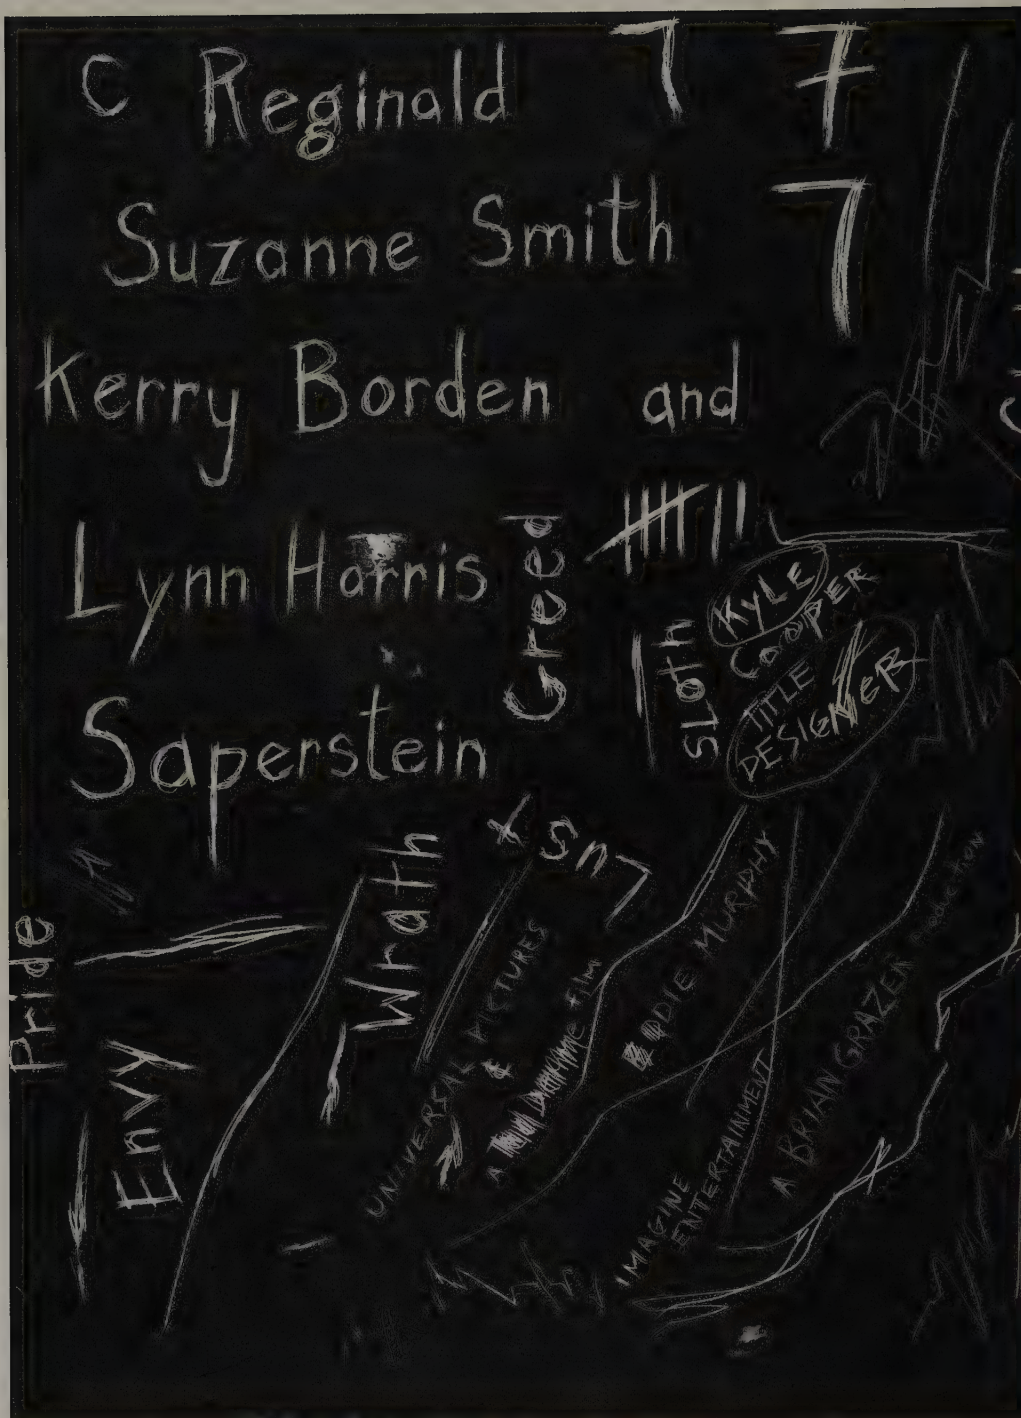 C Reginald 7 7
Suzanne Smith 7
Kerry Borden and
Lynn Harris
Saperstein
Greed
Sloth
KYLE
COOPER
TITLE
DESIGNER
Lust
Wrath
Pride
Envy
UNIVERSAL PICTURES
&
A
film
EDDIE MURPHY
IMAGINE
ENTERTAINMENT
A BRIAN GRAZER Production